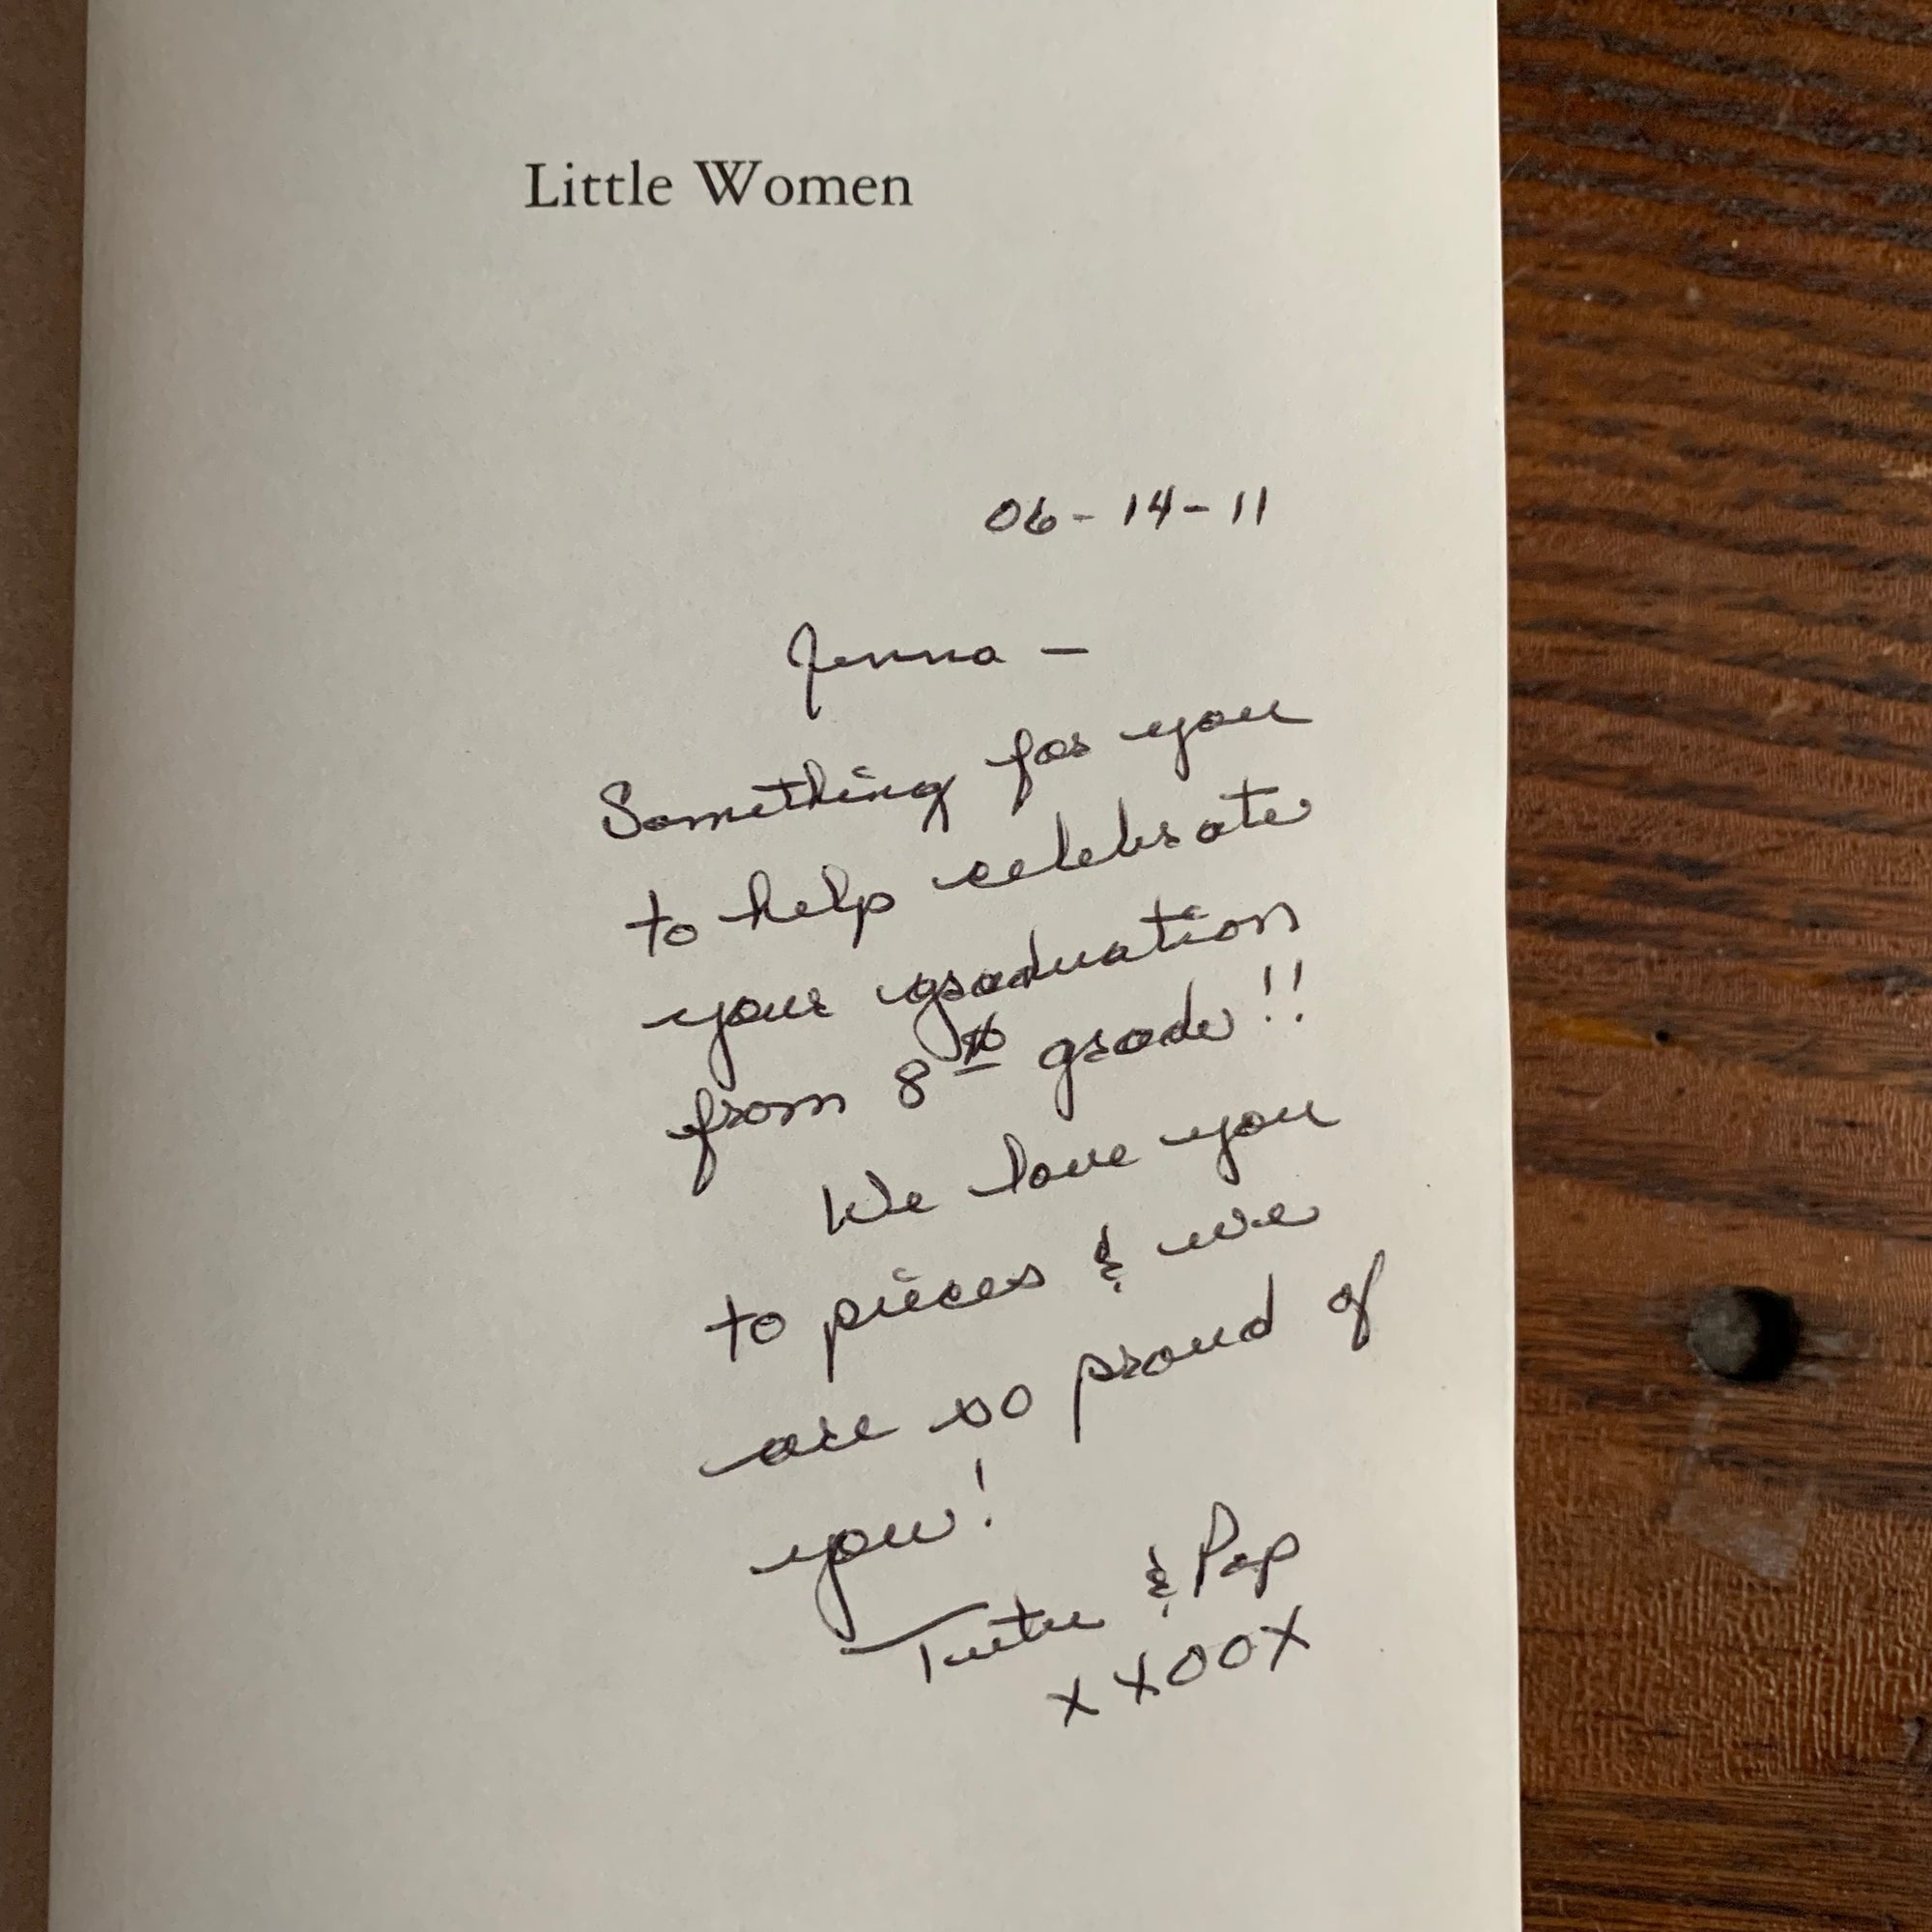 Little Women
06-14-11
Jenna —
Something for you
to help celebrate
your graduation
from 8th grade!!
We love you
to pieces & we
are so proud of
you!
Tutu & Pop
XXOOX